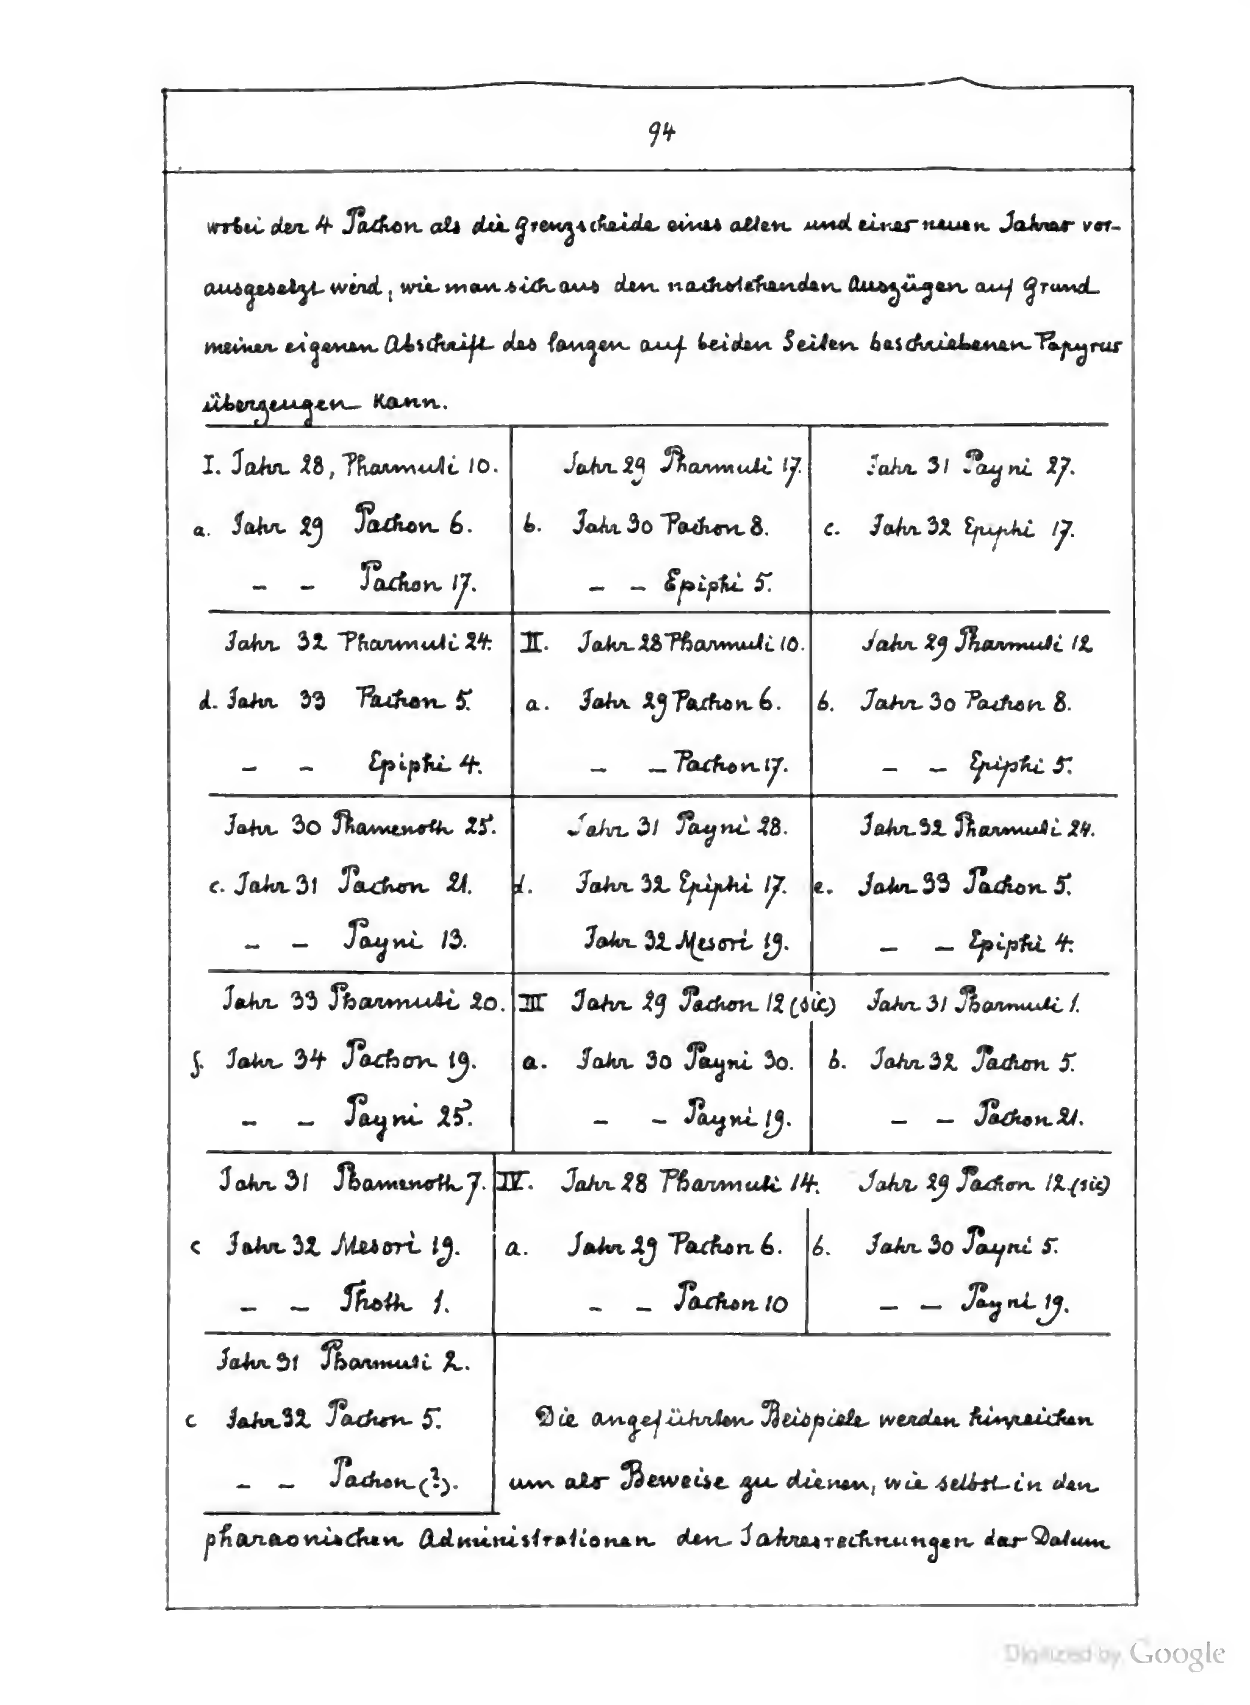 94
wobei der 4 Pachon als die Grenzscheide eines alten und eines neuen Jahres vor-
ausgesetzt wird, wie man sich aus den nachstehenden Auszügen auf Grund
meiner eigenen Abschrift des langen auf beiden Seiten beschriebenen Papyrus
überzeugen kann.
I. Jahr 28, Pharmuti 10.
a. Jahr 29 Pachon 6.
– – Pachon 17.
Jahr 29 Pharmuti 17.
b. Jahr 30 Pachon 8.
– – Epiphi 5.
Jahr 31 Payni 27.
c. Jahr 32 Epiphi 17.
Jahr 32 Pharmuti 24.
d. Jahr 33 Pachon 5.
– – Epiphi 4.
II. Jahr 28 Pharmuti 10.
a. Jahr 29 Pachon 6.
– – Pachon 17.
Jahr 29 Pharmuti 12
b. Jahr 30 Pachon 8.
– – Epiphi 5.
Jahr 30 Phamenoth 25.
c. Jahr 31 Pachon 21.
– – Payni 13.
Jahr 31 Payni 28.
d. Jahr 32 Epiphi 17.
Jahr 32 Mesori 19.
Jahr 32 Pharmuti 24.
e. Jahr 33 Pachon 5.
– – Epiphi 4.
Jahr 33 Pharmuti 20.
f. Jahr 34 Pachon 19.
– – Payni 25.
III Jahr 29 Pachon 12 (sic)
a. Jahr 30 Payni 30.
– – Payni 19.
Jahr 31 Pharmuti 1.
b. Jahr 32 Pachon 5.
– – Pachon 21.
Jahr 31 Phamenoth 7.
c Jahr 32 Mesori 19.
– – Thoth 1.
IV. Jahr 28 Pharmuti 14.
a. Jahr 29 Pachon 6.
– – Pachon 10
Jahr 29 Pachon 12 (sic)
b. Jahr 30 Payni 5.
– – Payni 19.
Jahr 31 Pharmuti 2.
c Jahr 32 Pachon 5.
– – Pachon (?).
Die angeführten Beispiele werden hinreichen
um als Beweise zu dienen, wie selbst in den
pharaonischen Administrationen den Jahresrechnungen das Datum
Digitized by Google